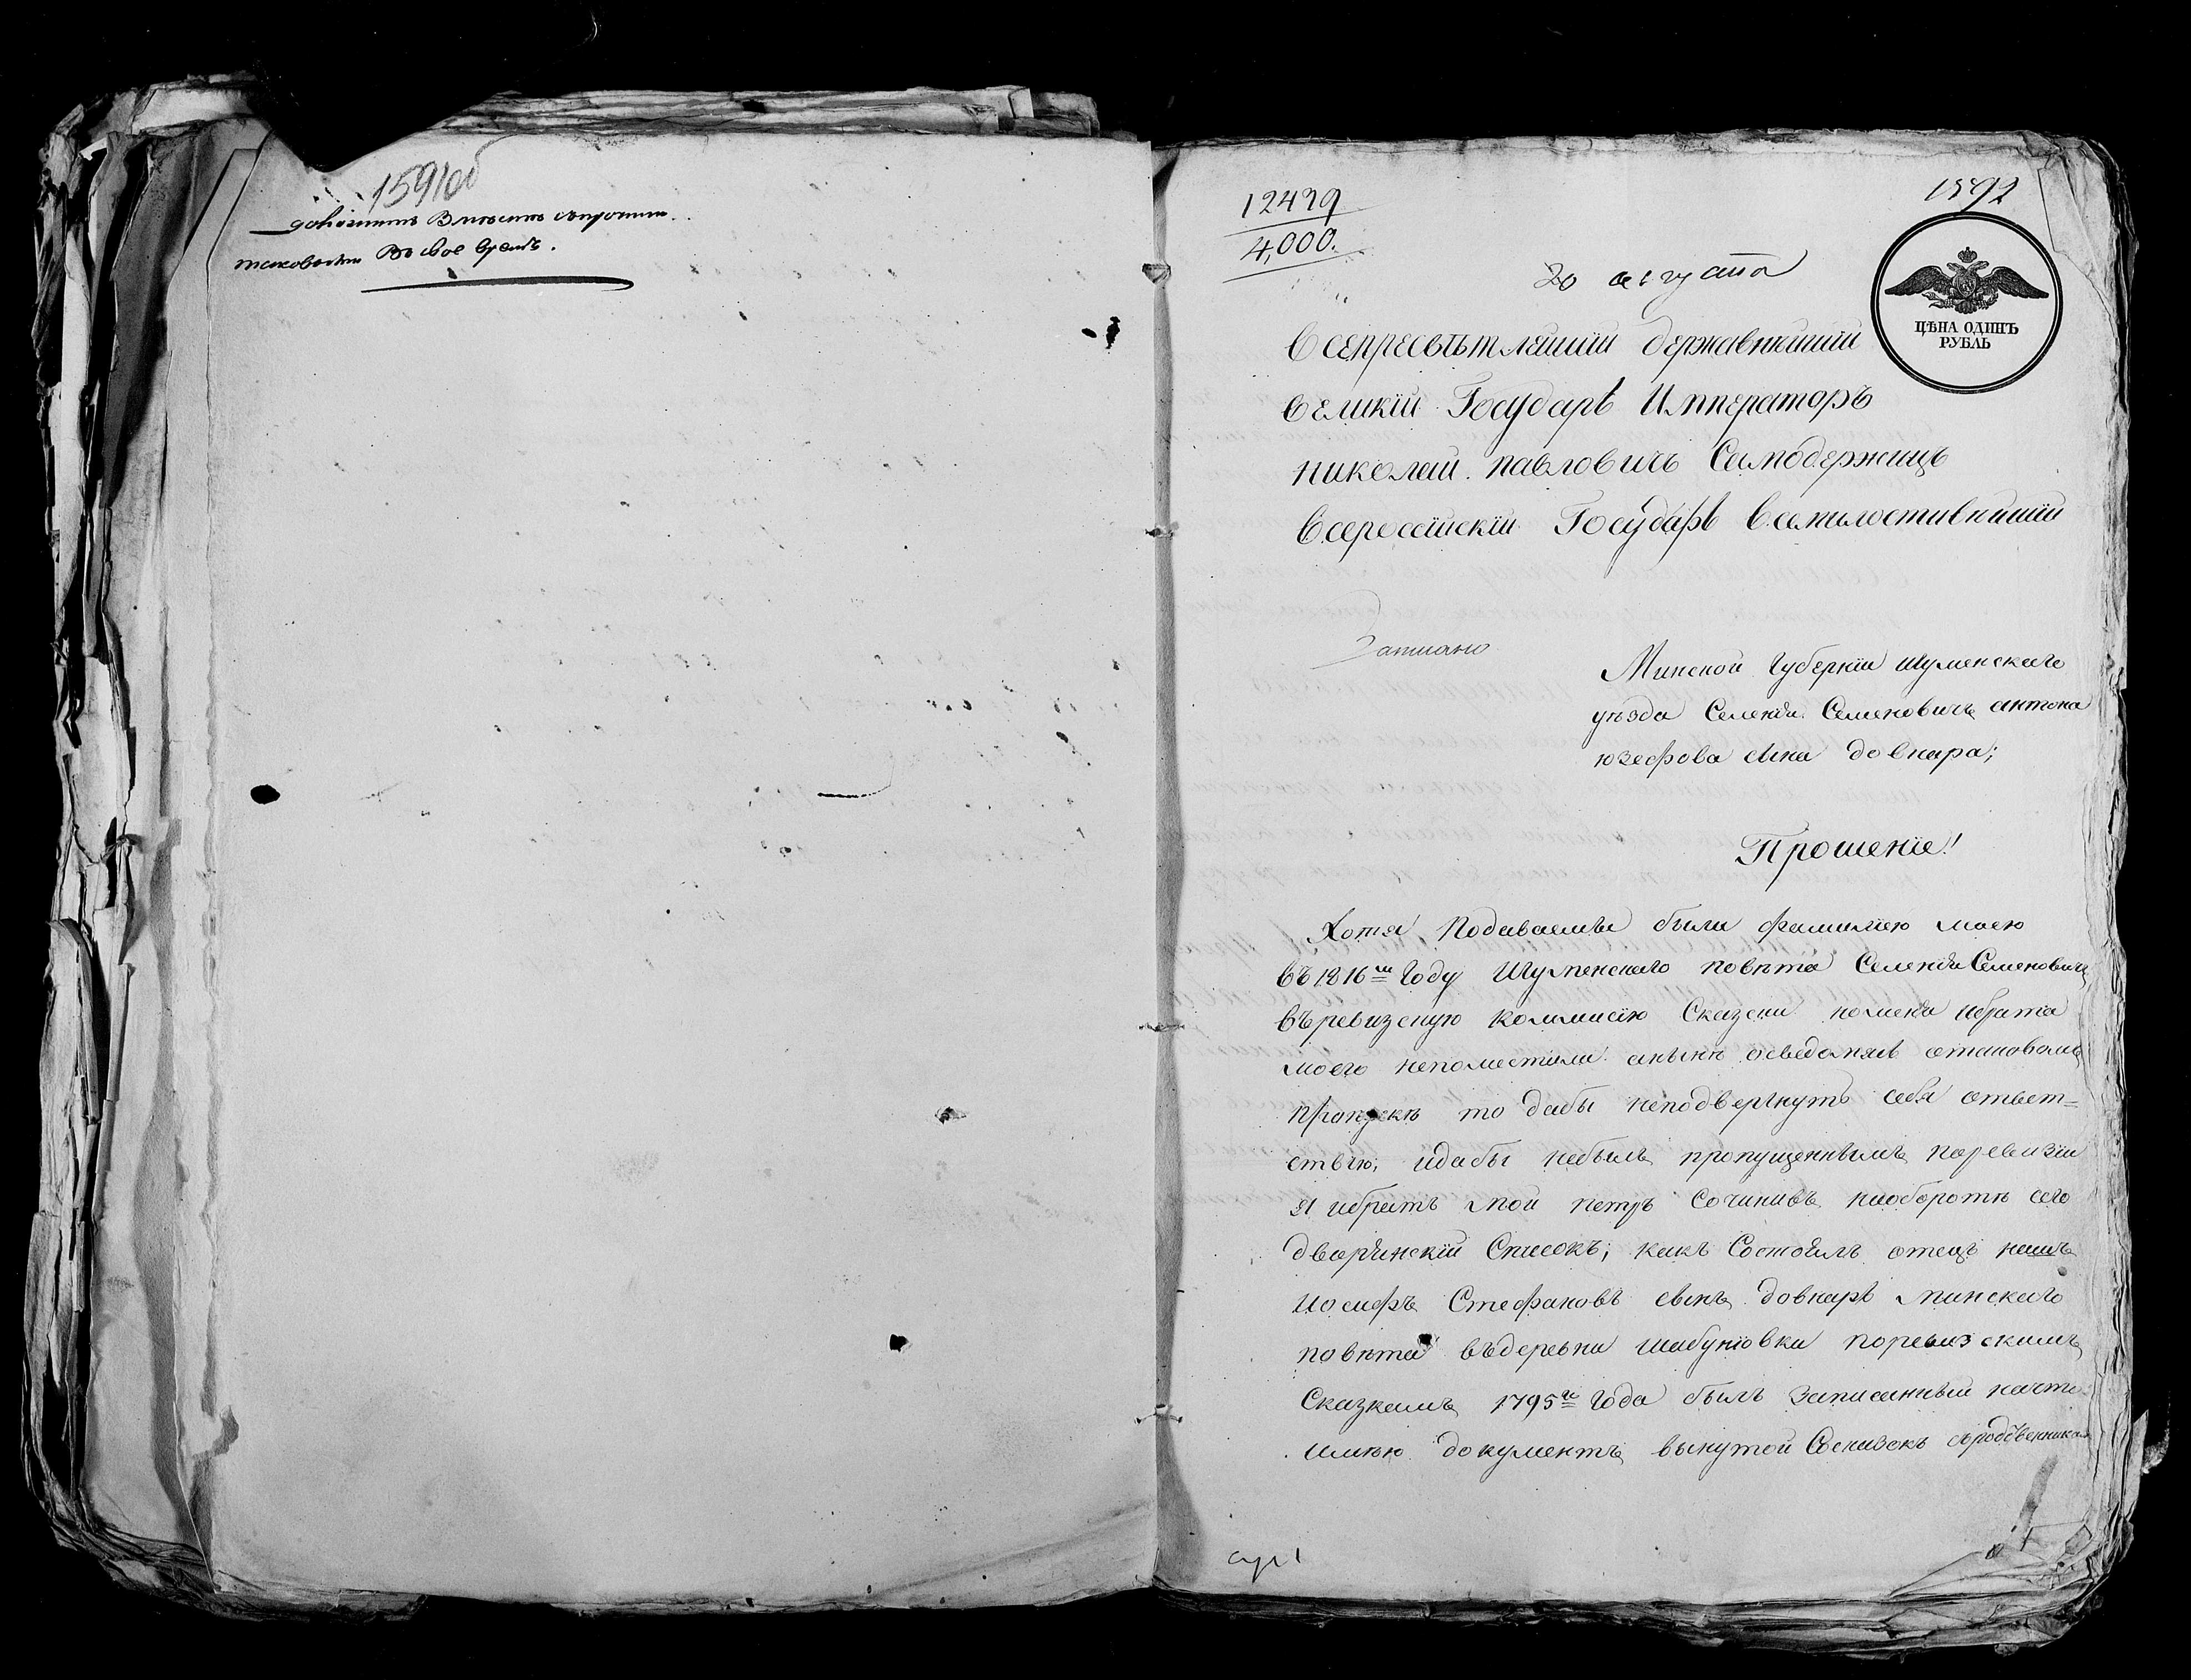 1591об
доносить Вместе
таковости Во свое время.
12439
4,000.
1592
20 августа
ЦѢНА ОДИНЪ
РУБЛЬ
Всепресвѣтлейшій державнѣйшій
Великій Государь Императоръ
Николай Павловичъ Самодержецъ
Всеросейскій Государь Всемилостивейшій
Записано
Минской Губерніи Игуменскаго
уѣзда Селенія Семеновичъ антона
юзефова сына довнара;
Прошеніе!
Хотя подаваемы были фамиліею моею
въ 1816мъ Году Игуменского повѣта Селенія Семеновичъ
въ ревизскую коммисію Сказки но меня и брата
моего непоместили а нынѣ осведомясь о таковомъ
пропускѣ то дабы неподвергнуть себя ответ=
ствію, и дабы небыть пропущеннымъ по ревизіи
Я и братъ мой петръ Сочинивъ на оборотѣ сего
дворянскій Списокъ; какъ Состоялъ отецъ нашъ
Иосифъ Стефановъ сынъ довнаръ минского
повѣта въ деревни шабуновки по ревизскимъ
Сказкамъ 1795го Года былъ записанный на что
имѣю документъ вынутой Сродственникам